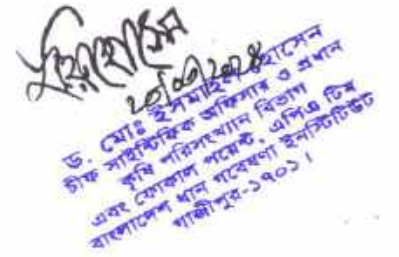 ২০/০৩/২০২৪
ড. মোঃ ইসমাইল হোসেন
চীফ সাইন্টিফিক অফিসার ও প্রধান
কৃষি পরিসংখ্যান বিভাগ
এবং ফোকাল পয়েন্ট, এপিএ টিম
বাংলাদেশ ধান গবেষণা ইনস্টিটিউট
গাজীপুর-১৭০১।